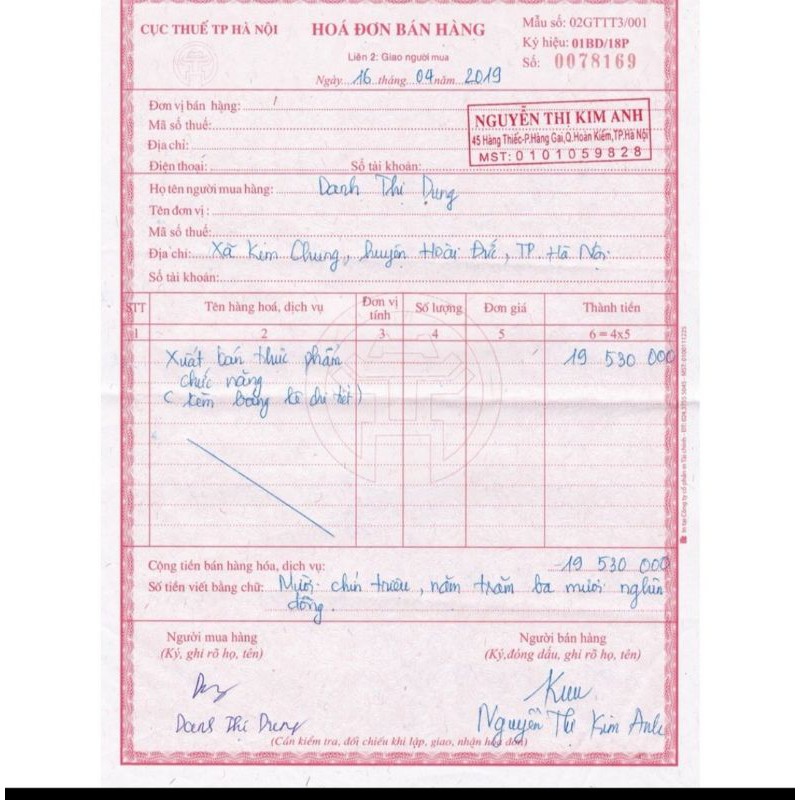 CỤC THUẾ TP HÀ NỘI
HOÁ ĐƠN BÁN HÀNG
Mẫu số: 02GTTT3/001
Liên 2: Giao người mua
Ký hiệu: 01BD/18P
Ngày...16...tháng...04...năm...2019
Số: 0078169
Đơn vị bán hàng:
Mã số thuế:
Địa chỉ:
Điện thoại: Số tài khoản:
NGUYỄN THỊ KIM ANH
45 Hàng Thiếc-P.Hàng Gai,Q.Hoàn Kiếm,TP.Hà Nội
MST: 0101059828
Họ tên người mua hàng: Danh Thị Dung
Tên đơn vị :
Mã số thuế:
Địa chỉ: Xã Kim Chung, huyện Hoài Đức, TP. Hà Nội
Số tài khoản:
STT Tên hàng hoá, dịch vụ Đơn vị tính Số lượng Đơn giá Thành tiền
1 2 3 4 5 6 = 4x5
Xuất bán thực phẩm 19 530 000
chức năng
( kèm bảng kê chi tiết )
Cộng tiền bán hàng hóa, dịch vụ: 19 530 000
Số tiền viết bằng chữ: Mười chín triệu, năm trăm ba mươi nghìn
đồng.
Người mua hàng Người bán hàng
(Ký, ghi rõ họ, tên) (Ký,đóng dấu, ghi rõ họ, tên)
Danh Thị Dung Nguyễn Thị Kim Anh
(Cần kiểm tra, đối chiếu khi lập, giao, nhận hoá đơn)